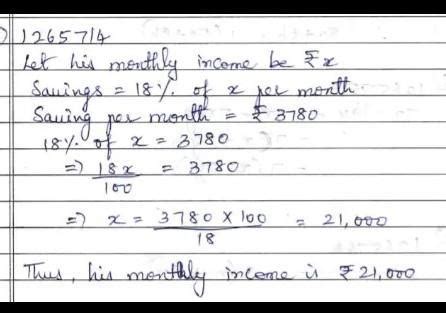 126571/4
Let his monthly income be ₹x
Savings = 18% of x per month
Saving per month = ₹ 3780
18% of x = 3780
=) 18x = 3780
100
=) x = 3780 X 100 = 21,000
18
Thus, his monthly income is ₹21,000